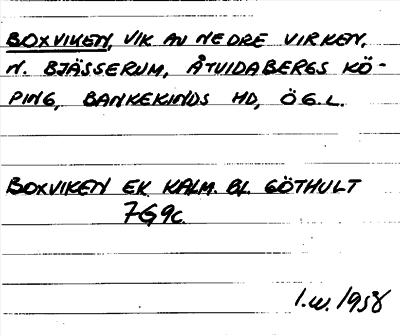 BOXVIKEN, VIK AV NEDRE VIRKEN,
N. BJÄSSERUM, ÅTVIDABERGS KÖ-
PING, BANKEKINDS HD, ÖG.L.
BOXVIKEN EK. KALM. BL. GÖTHULT
7G9c.
I.W. 1958